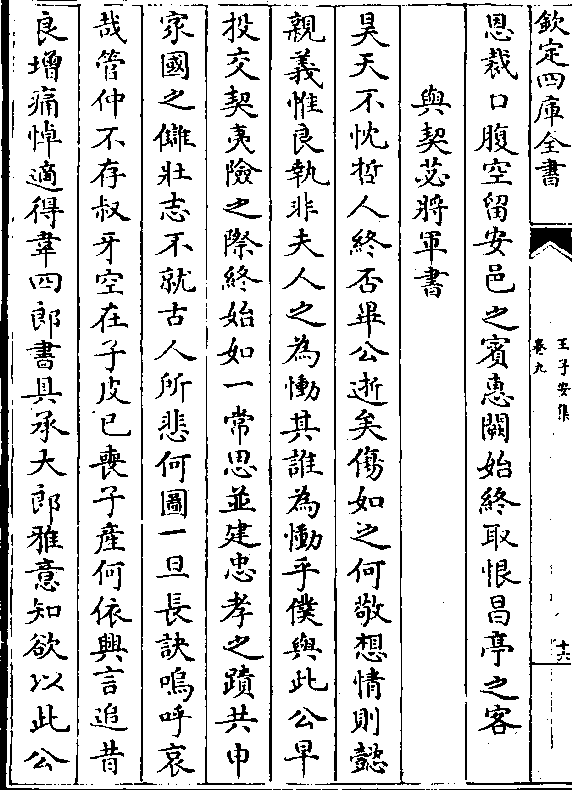 欽定四庫全書
王子安集
卷九
十六
恩裁口腹空留安邑之賓惠闕始終取恨昌亭之客
與契苾將軍書
昊天不忱哲人終否畢公逝矣傷如之何敬想情則懿
親義惟良執非夫人之為慟其誰為慟乎僕與此公早
投交契夷險之際終始如一常思並建忠孝之蹟共申
家國之讎壯志不就古人所悲何圖一旦長訣嗚呼哀
哉管仲不存叔牙空在子皮已喪子産何依興言追昔
良增痛悼適得韋四郎書具承大郎雅意知欲以此公